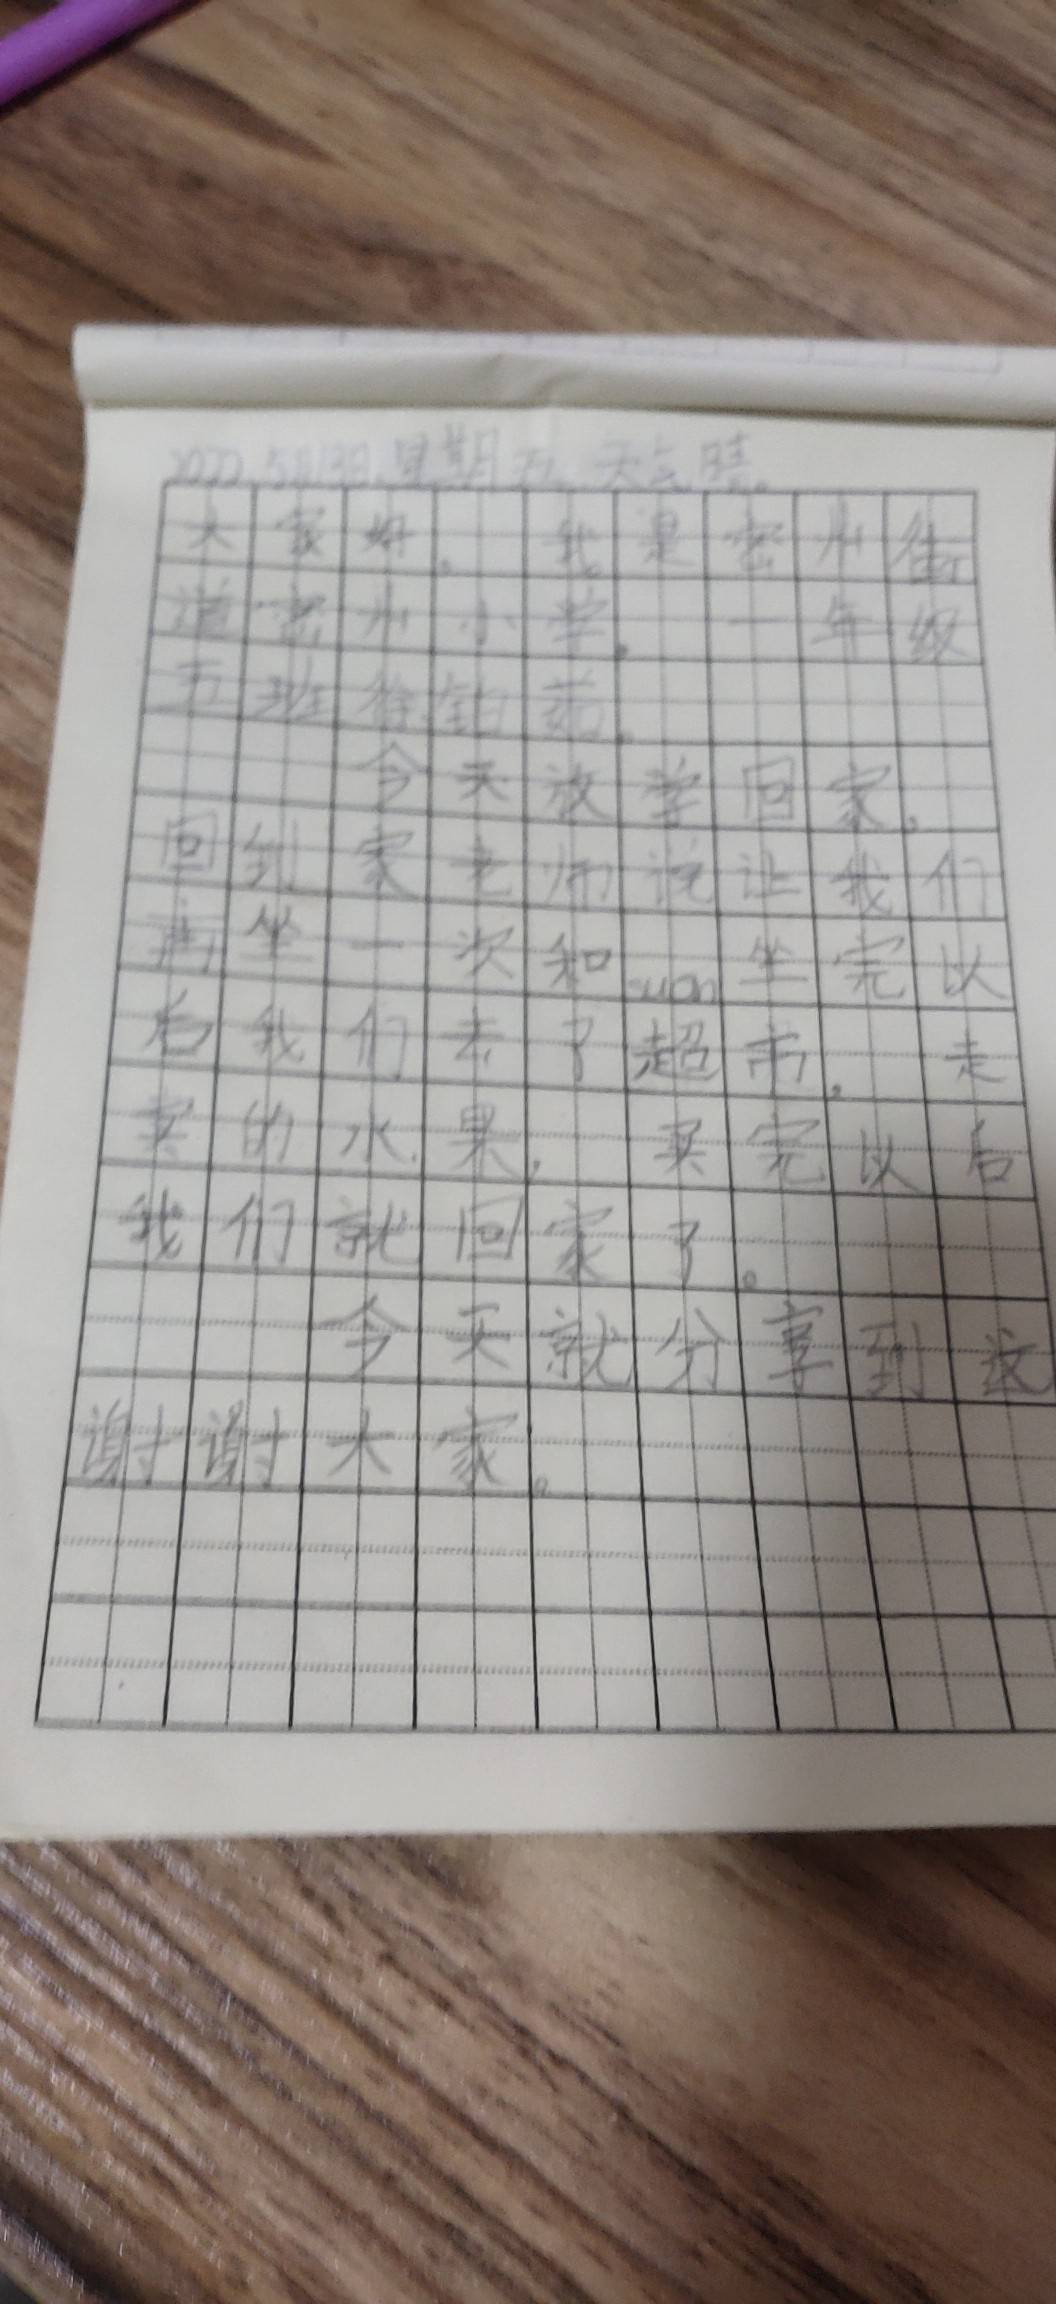 2022.5月13日.星期五.天气晴。
大家好。我是密州街
道密州小学。一年级
五班徐钰茹。
今天放学回家。
回到家老师说让我们
再坐一次和suan坐完以
后我们去了超市。走
卖的水果,买完以后
我们就回家了。
今天就分享到这
谢谢大家。